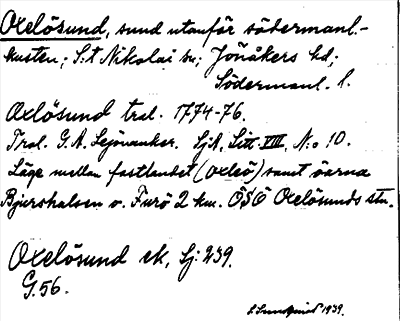 Oxelösund, sund utanför södermanl.-
kusten; S:t Nikolai sn; Jönåkers hd;
Södermanl. l.
Oxlösund trol. 1774-76.
Trol. G.A. Lejonanker. SjK, Litt. VIII, N:o 10.
Läge mellan fastlandet (Oxelö) samt öarna
Bjurshalsen o. Furö 2 km. ÖSÖ Oxelösunds stn.
Oxelösund ek, Sj: 239.
G.56.
S. Sundqvist 1939.